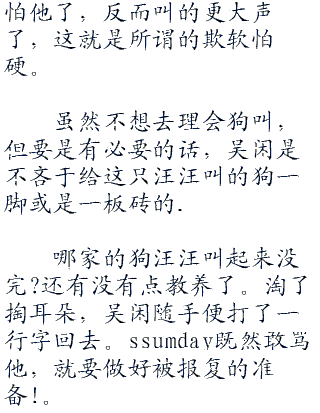 怕他了，反而叫的更大声
了，这就是所谓的欺软怕
硬。
虽然不想去理会狗叫，
但要是有必要的话，吴闲是
不吝于给这只汪汪叫的狗一
脚或是一板砖的.
哪家的狗汪汪叫起来没
完?还有没有点教养了。淘了
掏耳朵，吴闲随手便打了一
行字回去。ssumday既然敢骂
他，就要做好被报复的准
备!。